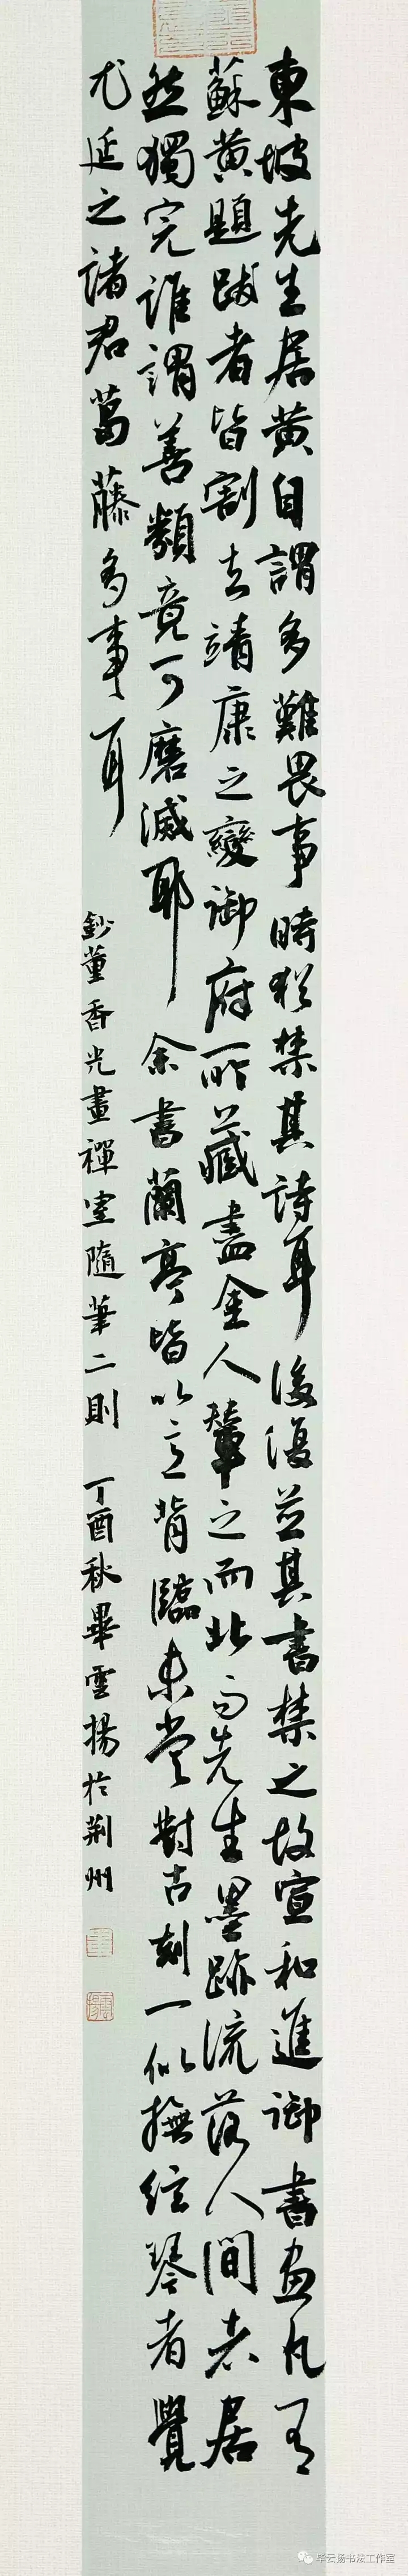 東坡先生居黄自謂多難畏事時猶禁其詩耳後復并其書禁之故宣和進御書畫凡有
蘇黄題跋者皆割去靖康之變御府所藏盡金人輦之而北而先生墨跡流落人間者居
然獨完誰謂善類竟可磨滅耶余書蘭亭皆以意背臨未嘗對古刻一似撫絃琴者覺
尤延之諸君葛藤多事耳
鈔董香光畫禪室隨筆二則 丁酉秋畢雲揚於荆州
毕云扬书法工作室